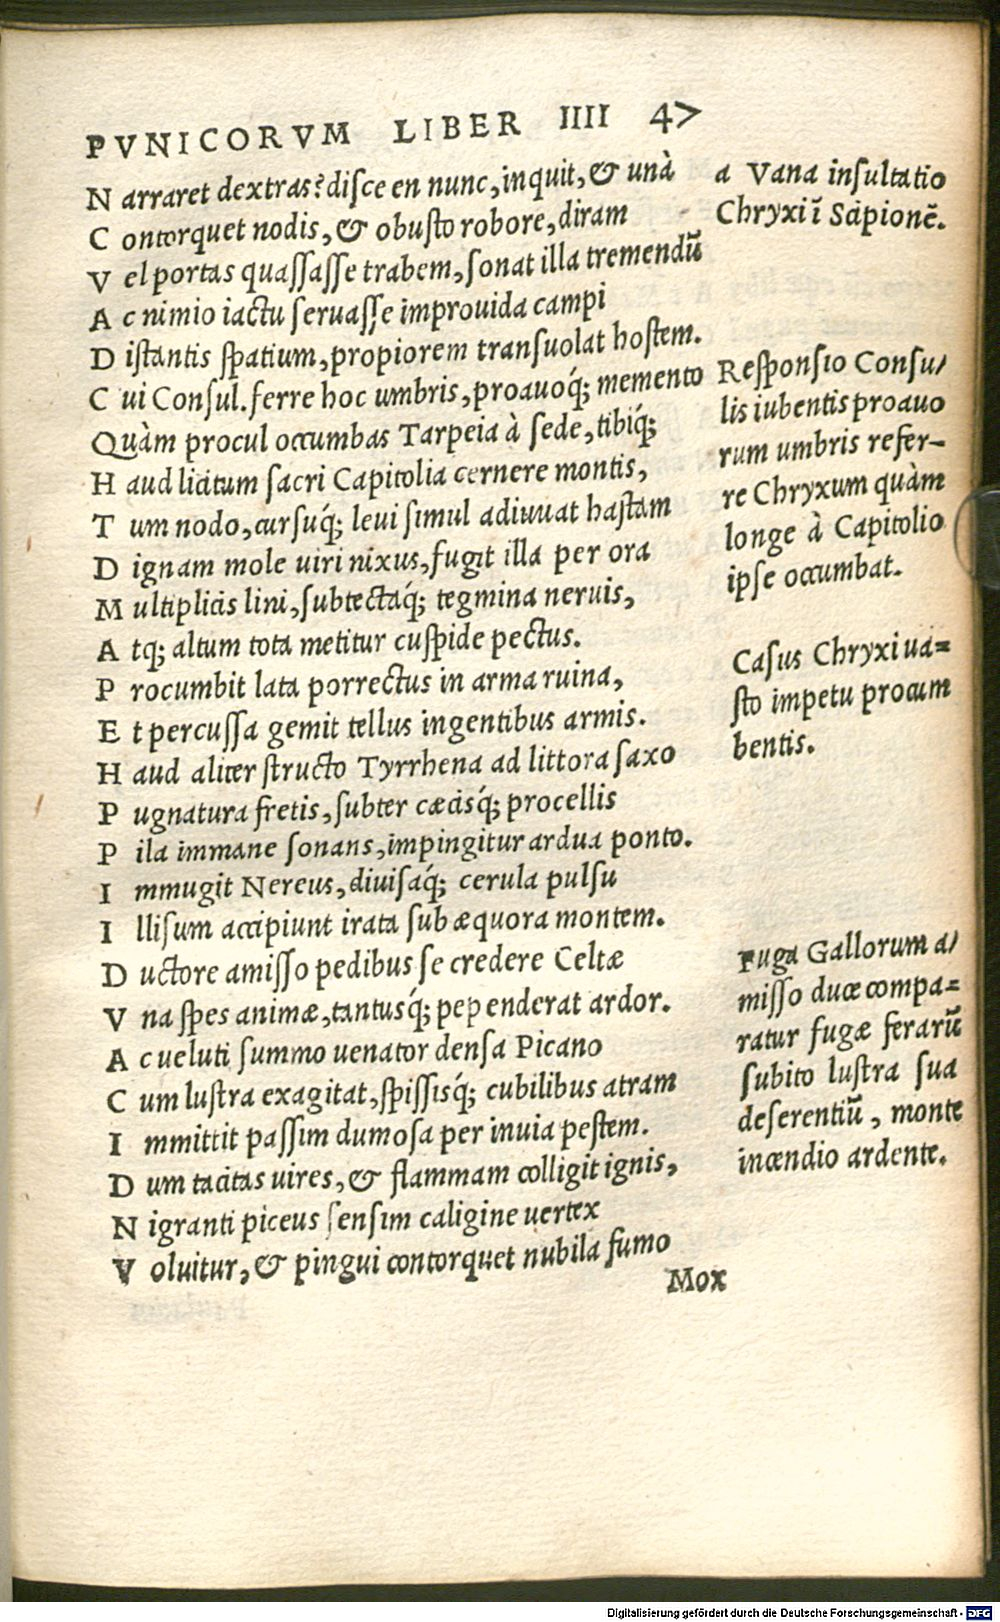 PVNICORVM LIBER IIII 47
N arraret dextras? disce en nunc, inquit, & unà
C ontorquet nodis, & obusto robore, diram
V el portas quassasse trabem, sonat illa tremendū
A c nimio iactu seruasse improuida campi
D istantis spatium, propiorem transuolat hostem.
C ui Consul. ferre hoc umbris, proauoq́; memento
Quàm procul occumbas Tarpeia à sede, tibiq́;
H aud licitum sacri Capitolia cernere montis,
T um nodo, cursuq́; leui simul adiuuat hastam
D ignam mole uiri nixus, fugit illa per ora
M ultiplicis lini, subtectaq́; tegmina neruis,
A tq; altum tota metitur cuspide pectus.
P rocumbit lata porrectus in arma ruina,
E t percussa gemit tellus ingentibus armis.
H aud aliter structo Tyrrhena ad littora saxo
P ugnatura fretis, subter cæcisq́; procellis
P ila immane sonans, impingitur ardua ponto.
I mmugit Nereus, diuisaq́; cerula pulsu
I llisum accipiunt irata sub æquora montem.
D uctore amisso pedibus se credere Celtæ
V na spes animæ, tantusq́; pependerat ardor.
A c ueluti summo uenator densa Picano
C um lustra exagitat, spissisq́; cubilibus atram
I mmittit passim dumosa per inuia pestem.
D um tacitas uires, & flammam colligit ignis,
N igranti piceus sensim caligine uertex
V oluitur, & pingui contorquet nubila fumo
Mox
a Vana insultatio
Chryxi ī Scipionē.
Responsio Consu/
lis iubentis proauo
rum umbris refer-
re Chryxum quàm
longe à Capitolio
ipse occumbat.
Casus Chryxi ua=
sto impetu procum
bentis.
Fuga Gallorum a/
misso duce compa-=
ratur fugæ ferarū
subito lustra sua
deserentiū, monte
incendio ardente.
Digitalisierung gefördert durch die Deutsche Forschungsgemeinschaft - DFG